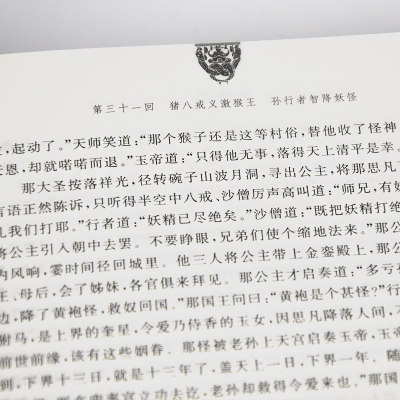 第三十一回 猪八戒义激猴王 孙行者智降妖怪
，起动了。”天师笑道：“那个猴子还是这等村俗，替他收了怪神
天恩，却就喏喏而退。”玉帝道：“只得他无事，落得天上清平是幸。
那大圣按落祥光，径转碗子山波月洞，寻出公主，将那思凡
有语正然陈诉，只听得半空中八戒、沙僧厉声高叫道：“师兄，有妖
几我们打耶。”行者道：“妖精已尽绝矣。”沙僧道：“既把妖精打绝
将公主引入朝中去罢。不要睁眼，兄弟们使个缩地法来。”那公
内风响，霎时间径回城里。他三人将公主带上金銮殿上，那公
王、母后，会了姊妹，各官俱来拜见。那公主才启奏道：“多亏孙
边，降了黄袍怪，救奴回国。”那国王问曰：“黄袍是个甚怪？”行
驸马，是上界的奎星，令爱乃侍香的玉女，因思凡降落人间，不
前世前缘，该有这些姻眷。那怪被老孙上天宫启奏玉帝，玉帝
到，下界十三日，就是十三年了，盖天上一日，下界一年。随
宫立功去讫，老孙却救得令爱来也。”那国